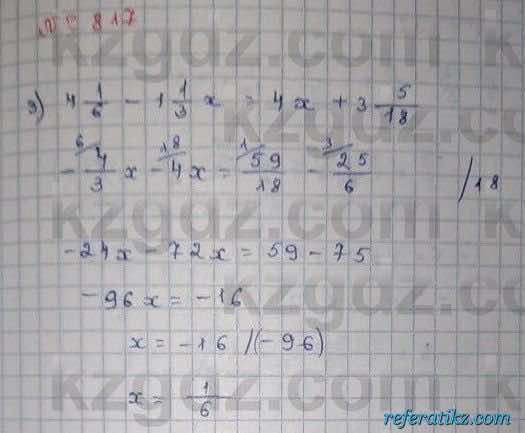 № 817
3) 4 1/6 - 1 1/3 x = 4x + 3 5/18
6/ 18/ 1/ 3/
- 4/3 x - 4x = 59/18 - 25/6 /18
-24x - 72x = 59 - 75
-96x = -16
x = -16 /(-96)
x = 1/6
kzgdz.com
referatikz.com